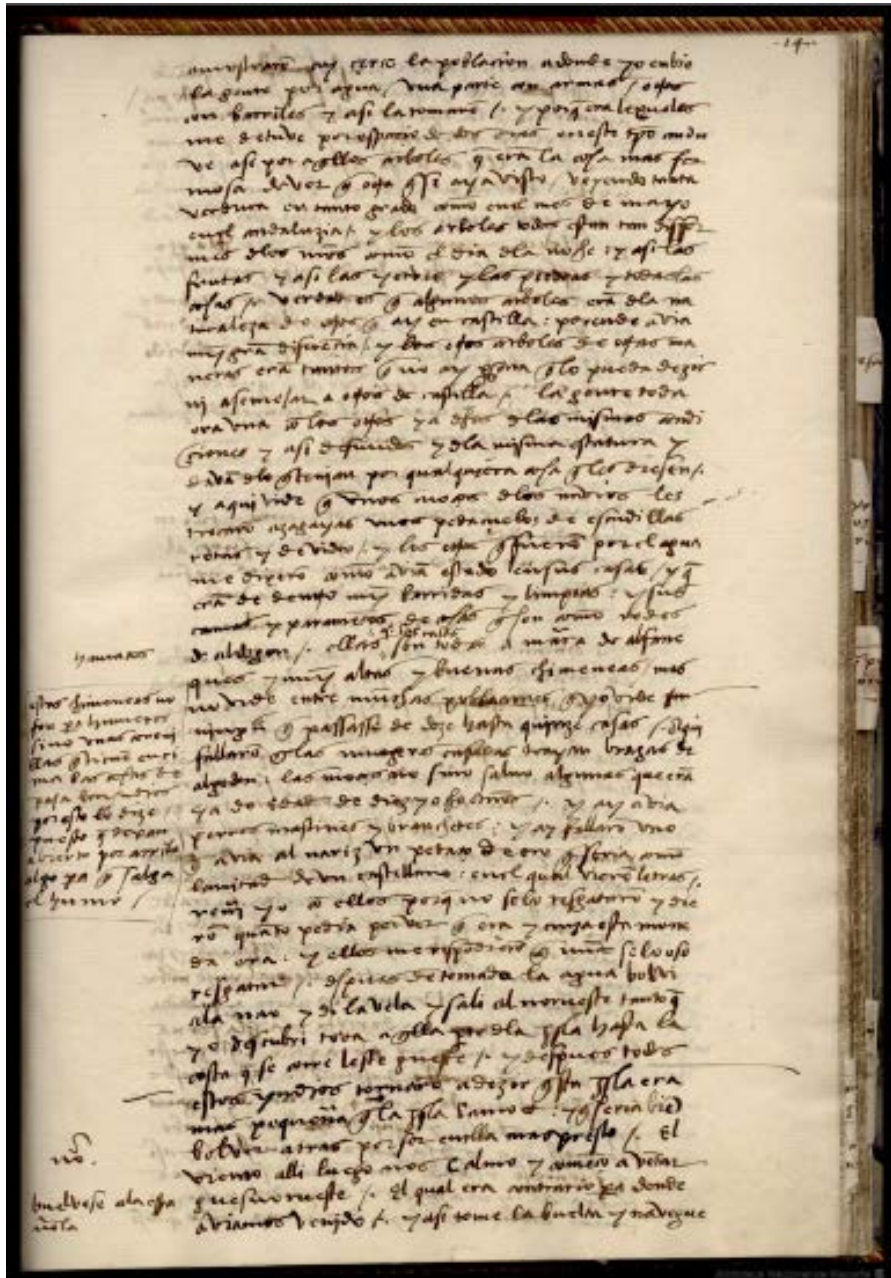 -14-
amostrarō ay çerca la poblaçion adonde yo enbie
la gente por agua / vna parte con armas / otros
con barriles y asi la tomarō /. y porq̃ era lexuelos
me detuve por espaçio de dos oras en este tpo andu
ve asi por aq̃llos arboles q̃ erā la cosa mas fer
mosa de ver q̃ otra q̃ se aya visto / veyendo tanta
verdura en tanto grado como en el mes de mayo
en el andaluzia / y los arboles todos estan tan disfor
mes dlos nr̃os como el dia dla noche : y asi las
frutas y asi las yervas y las piedras y todas las
cosas /. verdad es q̃ algunos arboles erā dla na
turaleza de otros q̃ ay en castilla : porende avia
muy grā diferençia / y los otros arboles de otras ma
neras erā tantos q̃ no ay persona q̃ lo pueda dezir
ni asemejar a otros de castilla /. la gente toda
era vna cō los otros ya dhos dlas mismas condi
çiones y asi desnudos y dla misma estatura y
davā dlo q̃ tenian por qualquiera cosa q̃ les diesen /.
y aqui vide q̃ vnos moços dlos navios les
trocarō azagayas vnos pedaçuelos de escudillas
rotas y de vidro / y los otros q̃ fuerō por el agua
me dixerō como aviā estado en sus casas / y q̃
erā de dentro muy barridas y limpias : y sus
camas y paramentos de cosas q̃ son como redes
de algodon /. ellas .s. las casas son todas a mar̃a de alfane
ques y muy altas y buenas chimeneas / mas
no vide entre muchas poblaçiones q̃ yo vide
ningūa q̃ passasse de doze hasta quinze casas / aqui
fallarō q̃ las mugeres casadas trayan bragas de
algodon : las moças no sino salvo algunas que erā
ya de edad de diez y ocho años /. y ay avia
perros mastines y branchetes : y ay fallarō vno
q̃ avia al nariz vn pedaço de oro q̃ seria como
la mitad de vn castellano : en el qual vierē letras /.
reñi yo cō ellos porq̃ no se lo resgatarō y die
rō quāto pedia por ver q̃ era y cuya esta mone
da era : y ellos me respōdierō q̃ nūca se lo oso
resgatar /. despues de tomada la agua bolvi
ala nao y di la vela y sali al norueste tanto q̃
yo descubri toda aq̃lla pte dla ysla hasta la
costa q̃ se corre leste gueste /. y despues todos
estos yndios tornarō a dezir q̃sta ysla era
mas pequeña q̃ la ysla samoet : y q̃ seria bien
bolver atras por ser en ella mas presto /. El
viento alli luego nos calmo y comēço a vētar
guesnorueste /. el qual era contrario pa donde
aviamos venido /. y asi tome la buelta y navegue
hamacas
estas chimeneas no
son pa humeros
sino vnas coroni
llas q̃ tienē enci
ma las casas de
paja dlos indios
por esto lo dize /
puesto q̃ dexan
abierto por arriba
algo pa q̃ salga
el humo /
no.
buelvese ala espa
ñola